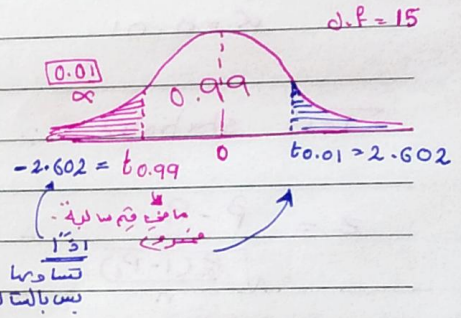 d.f = 15
0.01
∝
0.99
-2.602 = t0.99
0
t0.01 = 2.602
ما في قيم سالبة
اذاً
تساويها
بس بالسالب